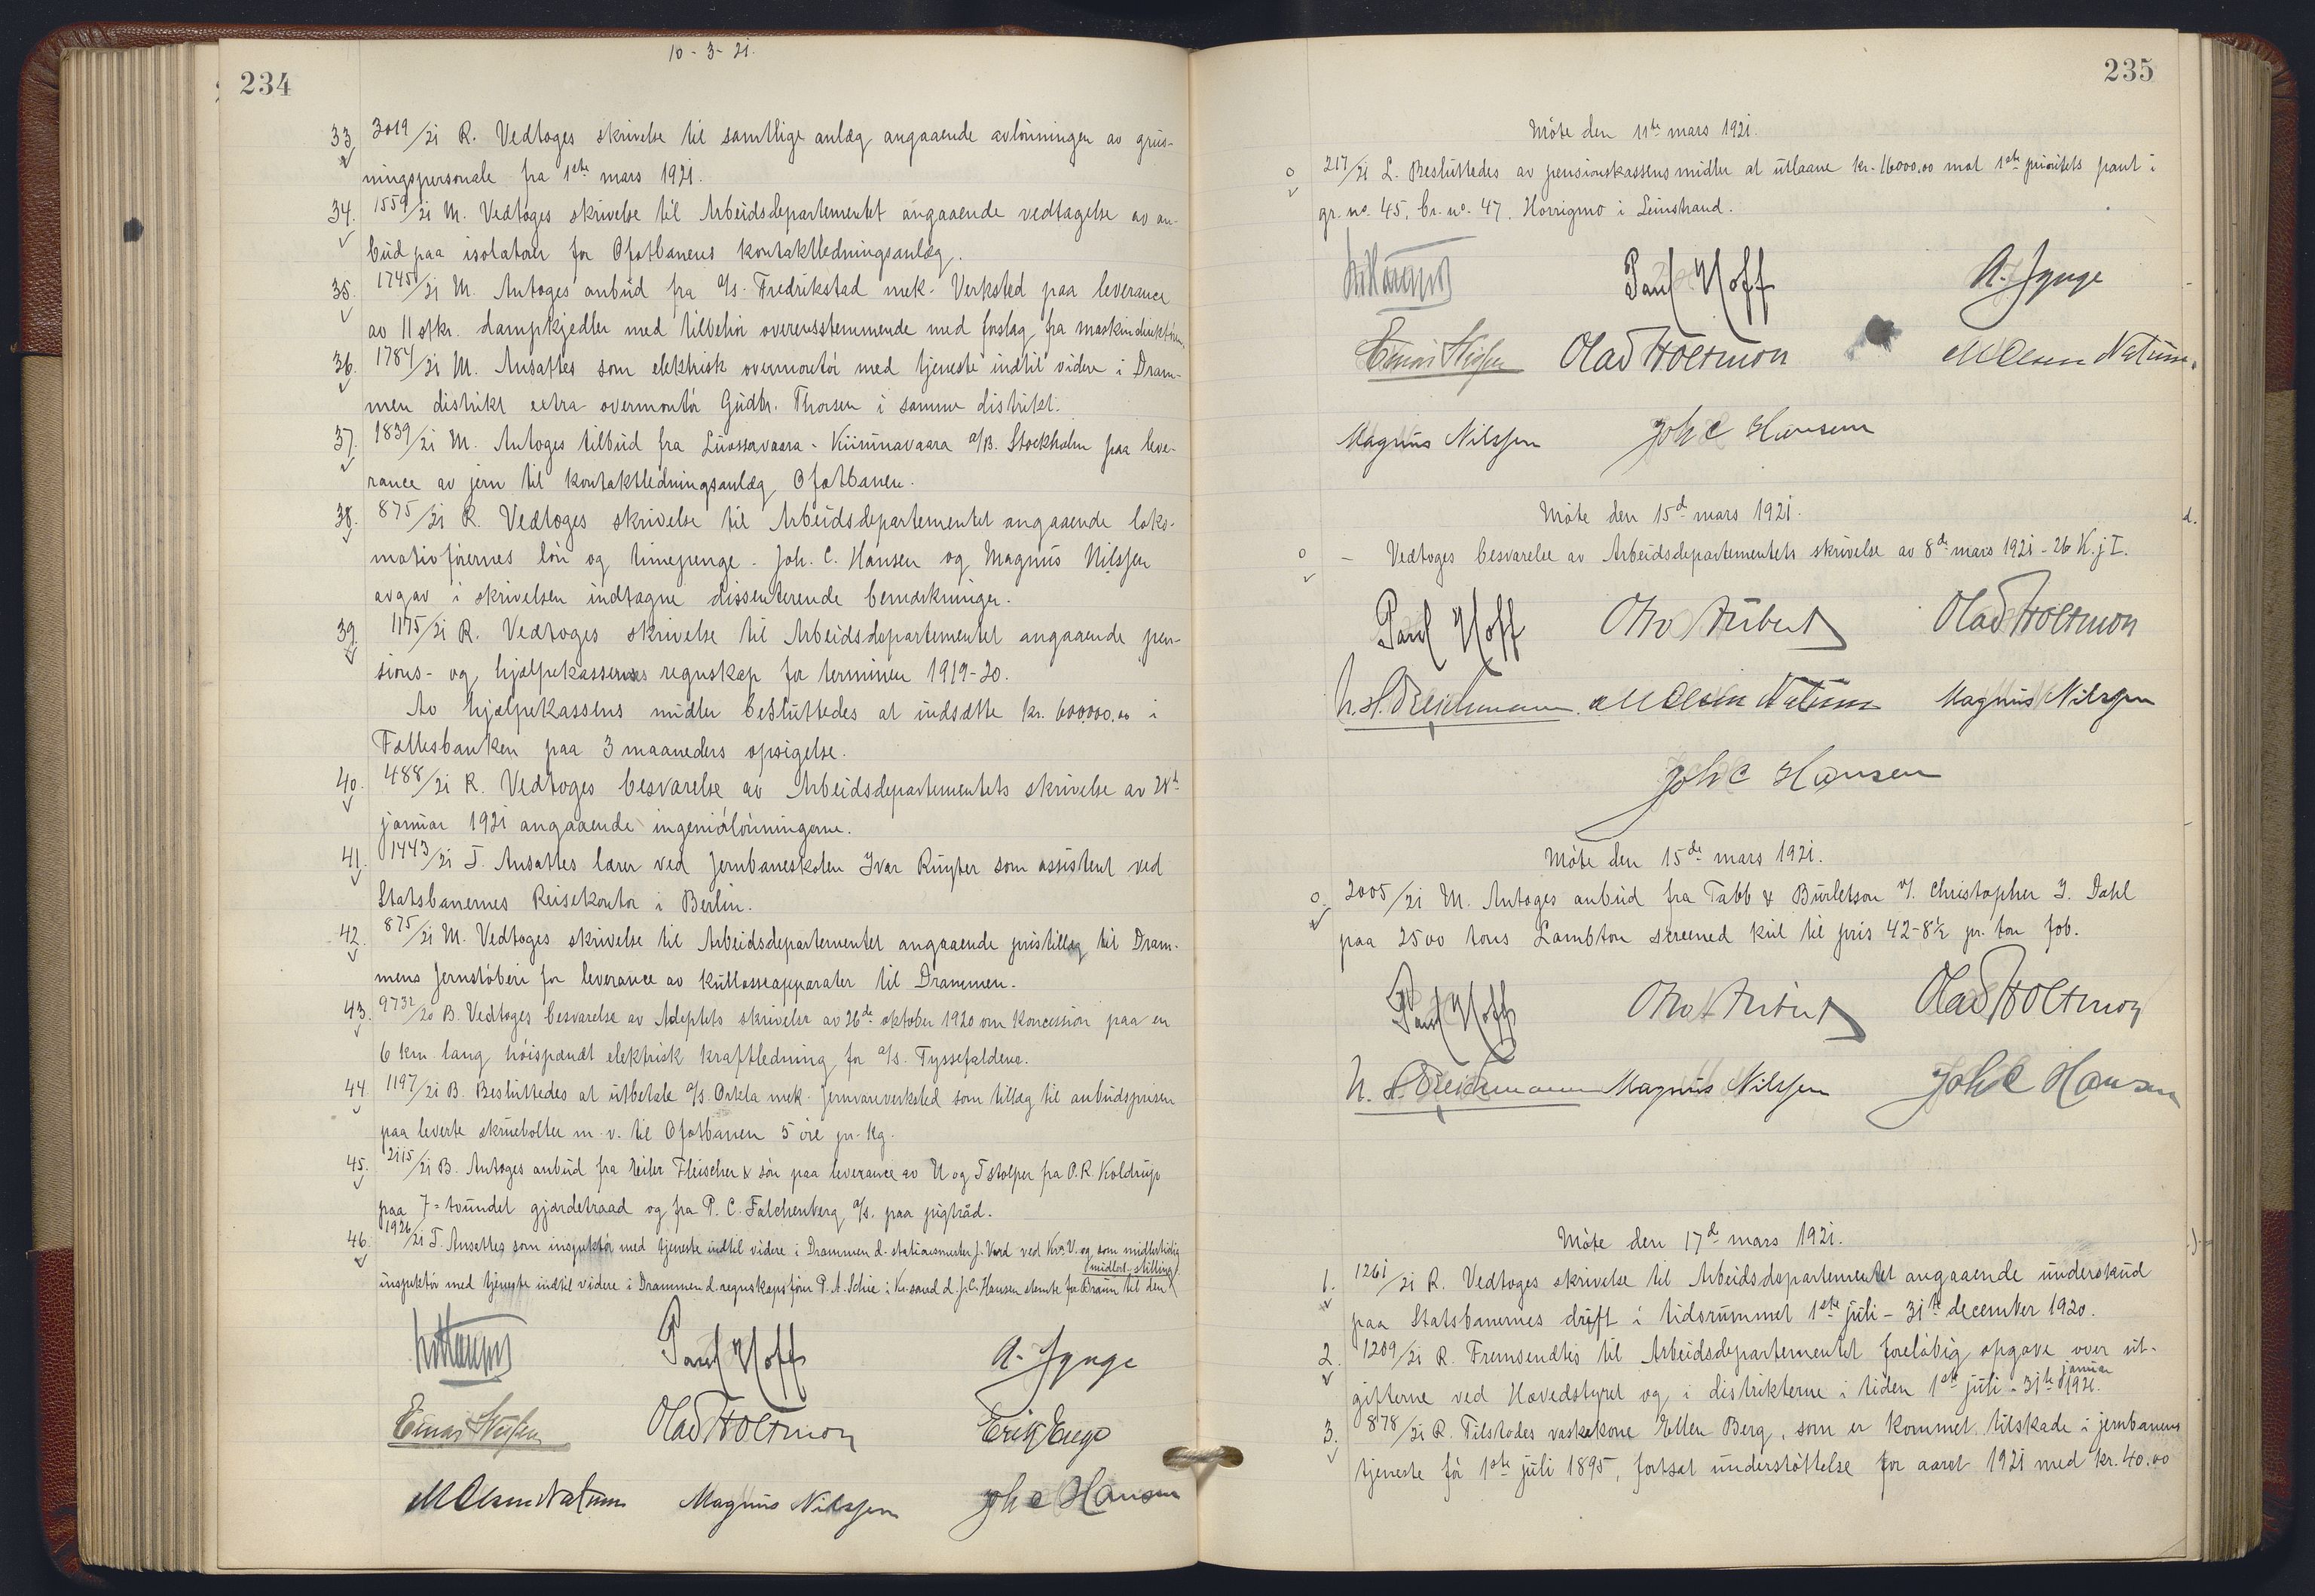 10-3-21.
234
33. 3019/21 R. Vedtoges skrivelse til samtlige anlæg angaaende avlønningen av grus-
ningspersonale fra 1ste mars 1921.
34. 1559/21 M. Vedtoges skrivelse til Arbeidsdepartementet angaaende vedtagelse av an-
bud paa isolatorer for Ofotbanens kontaktledningsanlæg.
35. 1745/21 M. Antoges anbud fra a/s. Fredrikstad mek. Verksted paa leverance
av 11 stkr. dampkjedler med tilbehør overensstemmende med forslag fra maskindirektøren.
36. 1784/21 M. Ansattes som elektrisk overmontør med tjeneste indtil videre i Dram-
men distrikt extra overmontør Gudbr. Thorsen i samme distrikt.
37. 1839/21 M. Antoges tilbud fra Luossavaara - Kiirunavaara a/B. Stockholm paa leve-
rance av jern til kontaktledningsanlæg Ofotbanen.
38. 875/21 R. Vedtoges skrivelse til Arbeidsdepartementet angaaende loko-
motivførernes løn og timepenge. Joh. C. Hansen og Magnus Nilssen
avgav i skrivelsen indtagne dissenterende bemerkninger.
39. 1175/21 R. Vedtoges skrivelse til Arbeidsdepartementet angaaende pen-
sions- og hjælpekassernes regnskap for terminen 1919-20.
Av hjælpekassens midler besluttedes at indsætte kr. 600000.00 i
Fællesbanken paa 3 maaneders opsigelse.
40. 488/21 R. Vedtoges besvarelse av Arbeidsdepartementets skrivelse av 28d
januar 1921 angaaende ingeniørlønningerne.
41. 1443/21 T. Ansattes lærer ved Jernbaneskolen Ivar Ruyter som assistent ved
Statsbanernes Reisekontor i Berlin.
42. 875/21 M. Vedtoges skrivelse til Arbeidsdepartementet angaaende pristillæg til Dram-
mens Jernstøberi for leverance av kullosseapparater til Drammen.
43. 9732/20 B. Vedtoges besvarelse av A.deptets skrivelse av 26de oktober 1920 om koncession paa en
6 km. lang høispændt elektrisk kraftledning for a/s. Tyssefaldene.
44. 1197/21 B. Besluttedes at utbetale a/s. Orkla mek. Jernvareverksted som tillæg til anbudsprisen
paa leverte skruebolter m.v. til Ofotbanen 5 øre pr. kg.
45. 2115/21 B. Antoges anbud fra Fleischer & søn paa leverance av U og T stolper fra O.R. Koldrup
paa 7-tvundet gjærdetraad og fra P. C. Falchenberg a/s. paa pigtråd.
46. 1926/21 T. Ansattes som inspektør med tjeneste indtil videre i Drammen d. stationsmester J. ved Kv. V. og som midlertidig
(midlert. stilling)
inspektør med tjeneste indtil videre i Drammen d. regnskapsfører P. A. Schie i Kr.sand d. J.C. Hansen stemte for Braun til den
Paul Hoff A. Jynge
Olav Holtmon
M Olsen Nalum Magnus Nilssen Joh C Hansen
235
Møte den 11te mars 1921.
217/21 L. Besluttedes av pensionskassens midler at utlaane kr. 16000.00 mot 1ste prioritets pant i
gr. no. 45, br. no. 47, Horrigmo i Leinstrand.
Paul Hoff A. Jynge
Olav Holtmon M Olsen Nalum.
Magnus Nilssen Joh C Hansen
Møte den 15d mars 1921.
- Vedtoges besvarelse av Arbeidsdepartementets skrivelse av 8de mars 1921 - 26 K. j I.
Paul Hoff Otto Aubert Olav Holtmon
M Olsen Nalum Magnus Nilssen
Joh C Hansen
Møte den 15de mars 1921.
2005/21 M. Antoges anbud fra Tabb & Burletson v/. Christopher I. Dahl
paa 2500 tons Lambton screened kul til pris 42-8½ pr. ton fob.
Paul Hoff Otto Aubert Olav Holtmon
Magnus Nilssen Joh C Hansen
Møte den 17d mars 1921.
1. 1261/21 R. Vedtoges skrivelse til Arbeidsdepartementet angaaende underskud
paa Statsbanernes drift i tidsrummet 1ste juli - 31te december 1920.
2. 1209/21 R. Fremsendtes til Arbeidsdepartementet foreløbig opgave over ut-
januar
gifterne ved Hovedstyret og i distrikterne i tiden 1ste juli - 31te 1921.
3. 878/21 R. Tilstodes vaskekone Ellen Berg, som er kommet tilskade i jernbanens
tjeneste før 1ste juli 1895, fortsat understøttelse for aaret 1921 med kr. 40.00